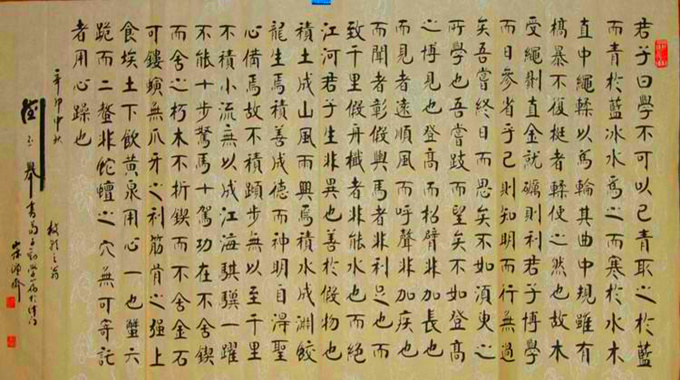 君子曰學不可以已青取之於藍
而青於藍冰水為之而寒於水木
直中繩輮以為輪其曲中規雖有
槁暴不復挺者輮使之然也故木
受繩則直金就礪則利君子博學
而日參省乎己則知明而行無過
矣吾嘗終日而思矣不如須臾之
所學也吾嘗跂而望矣不如登高
之博見也登高而招臂非加長也
而見者遠順風而呼聲非加疾也
而聞者彰假輿馬者非利足也而
致千里假舟檝者非能水也而絕
江河君子生非異也善於假物也
積土成山風雨興焉積水成淵蛟
龍生焉積善成德而神明自得聖
心備焉故不積蹞步無以至千里
不積小流無以成江海騏驥一躍
不能十步駑馬十駕功在不舍鍥
而舍之朽木不折鍥而不舍金石
可鏤螾無爪牙之利筋骨之强上
食埃土下飲黃泉用心一也蟹六
跪而二螯非蛇蟺之穴無可寄託
者用心躁也
辛卯中秋